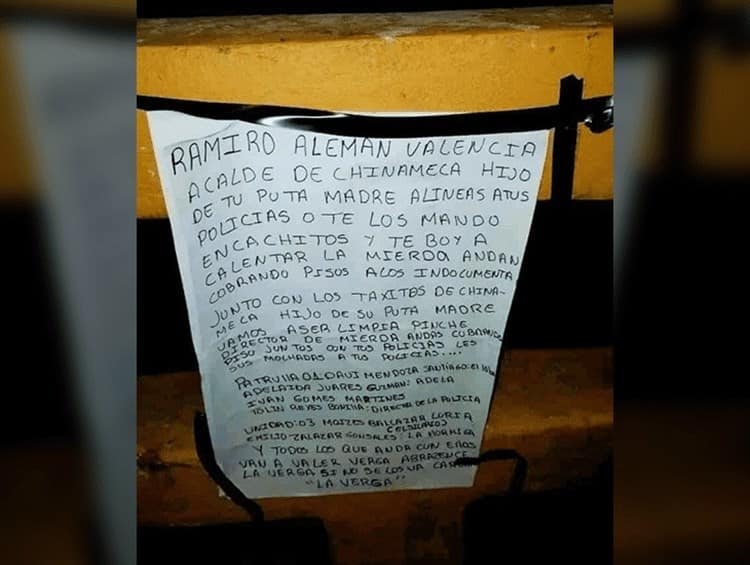 RAMIRO ALEMAN VALENCIA
ACALDE DE CHINAMECA HIJO
DE TU PUTA MADRE ALINEAS ATUS
POLICIAS O TE LOS MANDO
ENCACHITOS Y TE BOY A
CALENTAR LA MIERDA ANDAN
COBRANDO PISOS ALOS INDOCUMENTA
JUNTO CON LOS TAXITOS DE CHINA-
MECA HIJO DE SU PUTA MADRE
VAMOS ASER LIMPIA PINCHE
DIRECTOR DE MIERDA ANDAS COBRANDO
PISO JUNTOS CON TUS POLICIAS LES
SUS MOLHADAS A TUS POLICIAS....
PATRULLA 01: DAVI MENDOZA SANTIAGO: El
ADELAIDA JUARES GUZMAN: ADELA
IVAN GOMES MARTINES
TOLIN REYES BONILLA: DIRECTOR DE LA POLICIA
UNIDAD: 03 MOIZES BALCAZAR LORIA
EMILIO ZALAZAR GONSALES: LA HORMIGA
Y TODOS LOS QUE ANDA CON ELLOS
VAN A VALER VERGA ABRAZENCE
LA VERGA SI NO SE LOS VA
"LA VERGA"